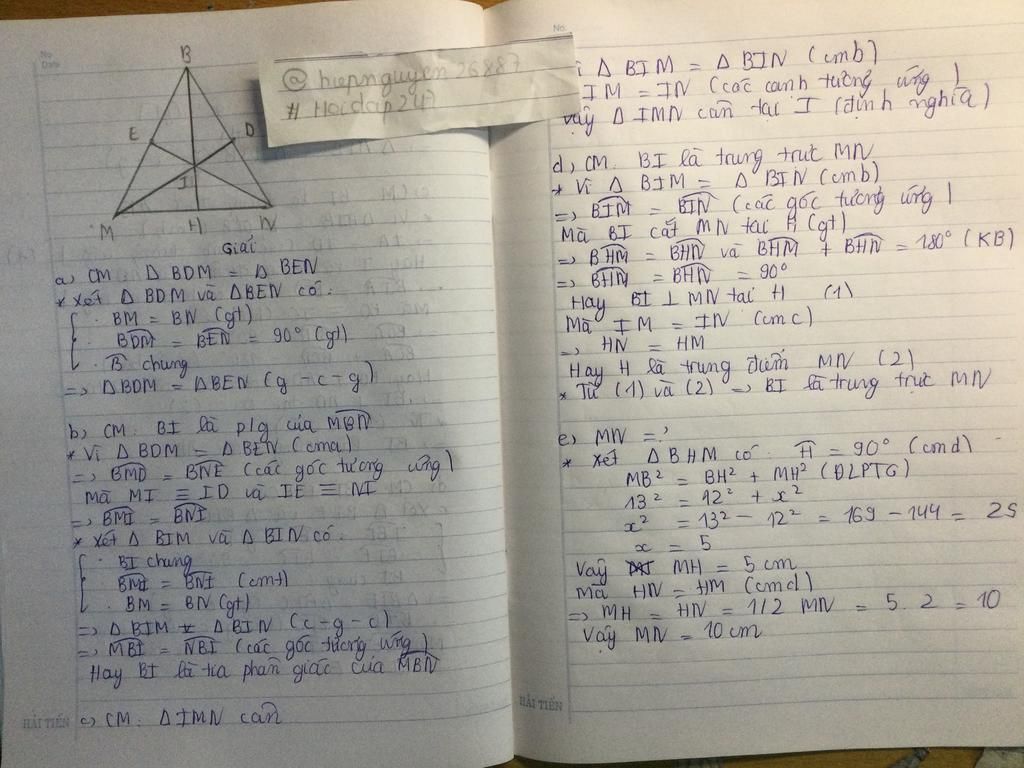 No
Date
B
E
D
I
M
H
N
Giải
a, CM Δ BDM = Δ BEN
* Xét Δ BDM và ΔBEN có:
· BM = BN (gt)
· BDM = BEN = 90° (gt)
· B chung
=> ΔBDM = ΔBEN (g - c - g)
b, CM: BI là p/g của MBN
* Vì Δ BDM = Δ BEN (cma)
=> BMD = BNE (các góc tương ứng)
Mà MI ≡ ID và IE ≡ NI
=> BMI = BNI
* Xét Δ BIM và Δ BIN có:
· BI chung
· BMI = BNI (cmt)
· BM = BN (gt)
=> Δ BIM = Δ BIN (c - g - c)
=> MBI = NBI (các góc tương ứng)
Hay BI là tia phân giác của MBN
c, CM: Δ IMN cân
HẢI TIẾN
@ hiepnguyen26887
# Hoidap247
No.
Δ BIM = Δ BIN (cmb)
IM = IN (các cạnh tương ứng)
Vậy Δ IMN cân tại I (định nghĩa)
d, CM: BI là trung trực MN
* Vì Δ BIM = Δ BIN (cmb)
=> BIM = BIN (các góc tương ứng)
Mà BI cắt MN tại H (gt)
=> BHM = BHN và BHM + BHN = 180° (KB)
=> BHM = BHN = 90°
Hay BI ⊥ MN tại H (1)
Mà IM = IN (cmc)
=> HN = HM
Hay H là trung điểm MN (2)
* Từ (1) và (2) => BI là trung trực MN
e, MN = ?
* Xét Δ BHM có: H = 90° (cmd)
MB² = BH² + MH² (ĐLPTG)
13² = 12² + x²
x² = 13² - 12² = 169 - 144 = 25
x = 5
Vậy MH = 5 cm
Mà HN = HM (cmd)
=> MH = HN = 1/2 MN = 5. 2 = 10
Vậy MN = 10 cm
HẢI TIẾN